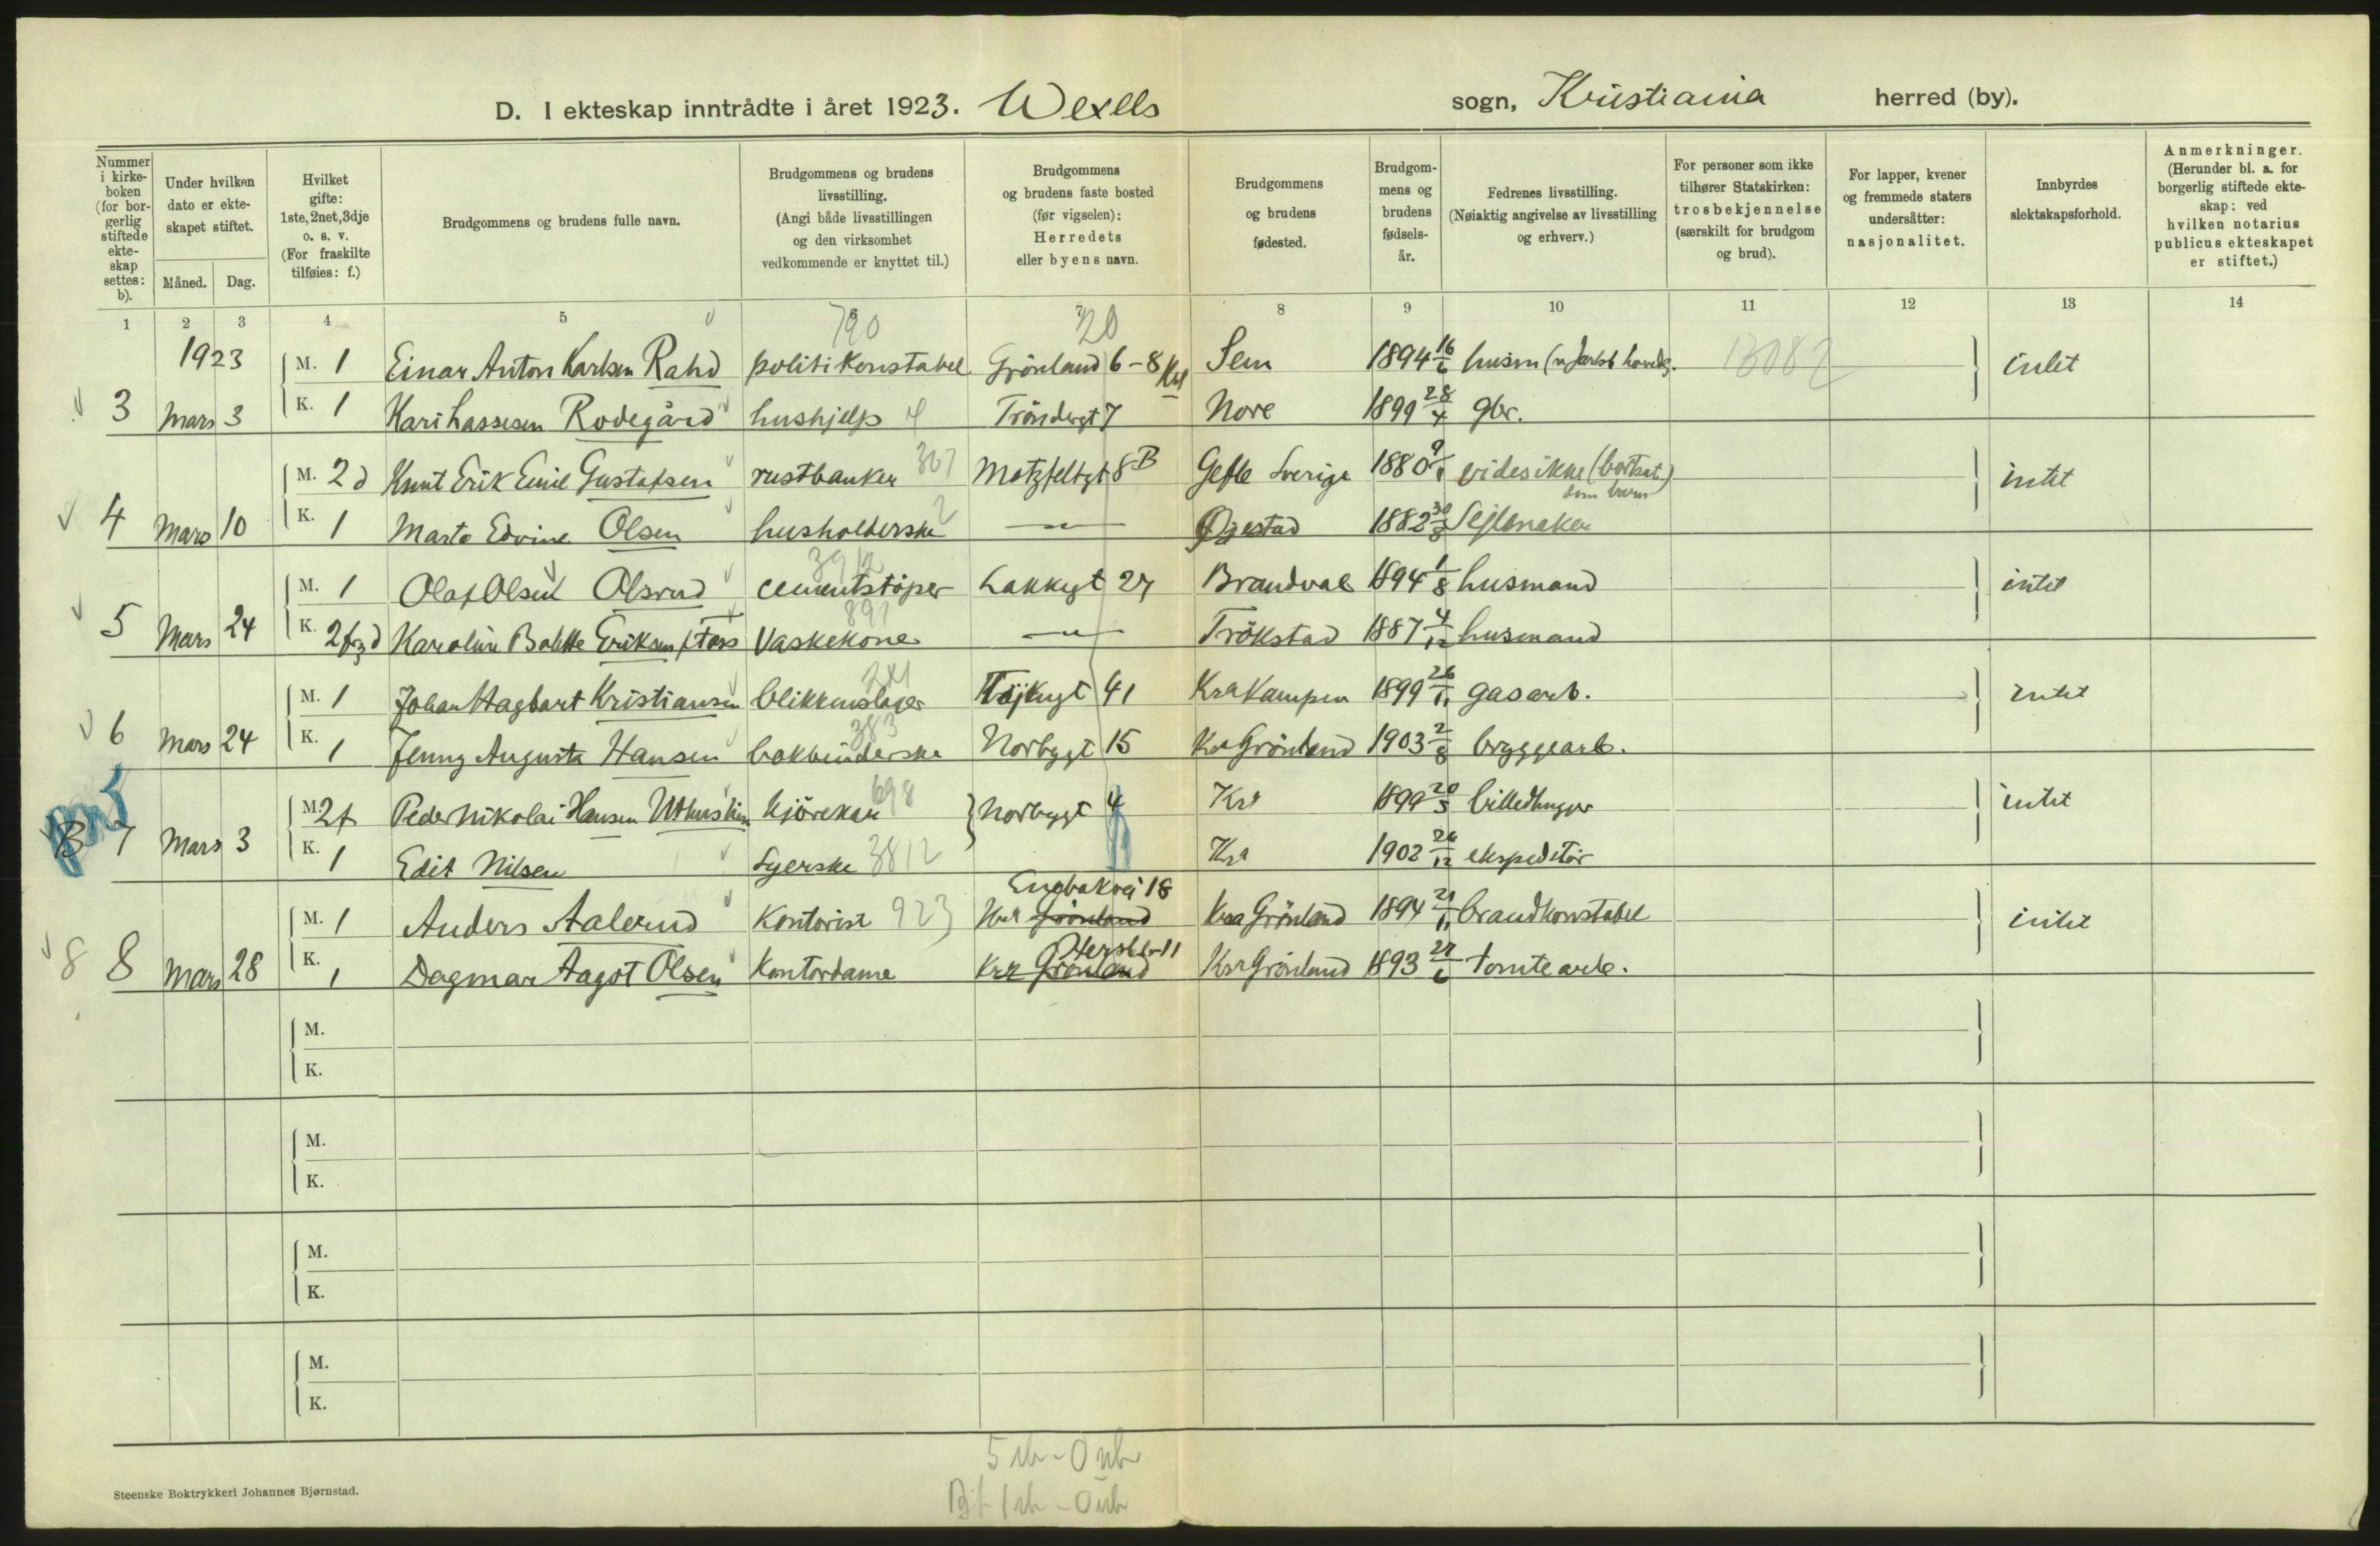 D. I ekteskap inntrådte i året 1923. Wexels sogn, Kristiania herred (by).
Nummer i kirkeboken (for borgerlig stiftede ekteskap settes: b).
Under hvilken dato er ekteskapet stiftet.
Måned. Dag.
Hvilket gifte: 1ste, 2net, 3dje o. s. v. (For fraskilte tilføies: f.)
Brudgommens og brudens fulle navn.
Brudgommens og brudens livsstilling. (Angi både livsstillingen og den virksomhet vedkommende er knyttet til.)
Brudgommens og brudens faste bosted (før vigselen): Herredets eller byens navn.
Brudgommens og brudens fødested.
Brudgommens og brudens fødselsår.
Fedrenes livsstilling. (Nøiaktig angivelse av livsstilling og erhverv.)
For personer som ikke tilhører Statskirken: trosbekjennelse (særskilt for brudgom og brud).
For lapper, kvener og fremmede staters undersåtter: nasjonalitet.
Innbyrdes slektskapsforhold.
Anmerkninger. (Herunder bl. a. for borgerlig stiftede ekteskap: ved hvilken notarius publicus ekteskapet er stiftet.)
1 2 3 4 5 8 9 10 11 12 13 14
790 20
1923 M. 1 Einar Anton Karlsen Rahd politikonstabel Grönland 6-8 Sem 1894 16/6 husm 13087 intet
3 Mars 3 K. 1 Kari Lassesen Rodegård hushjelp Tröndergt 7 Nore 1899 28/4 gbr.
M. 2 d Knut Erik Emil Gustafsen rustbanker 307 Motzfeltgt 8B Gefle Sverige 1880 videsikke (bortsat som barn) intet
4 Mars 10 K. 1 Marta Edvine Olsen husholderske 2 —"— Øjestad 1882 Sejlmaker
3912
M. 1 Olaf Olsen Olsrud cementstöper Lakkegt 27 Brandval 1894 1/8 husmand intet
891
5 Mars 24 K. Karoline Bolette Eriksen f. Foss Vaskekone —"— Trökstad 1887 4/12 husmand
241
M. 1 Johan Hagbart Kristiansen blikkenslager Töjengt 41 Kra Kampen 1899 26/11 gasarb. intet
383
6 Mars 24 K. 1 Jenny Augusta Hansen bokbinderske Norbygt 15 Kra Grönland 1903 2/8 bryggearb.
M. 2f Peder Nikolai Hansen kjörekar 698 Norbygt 4 Kra 1899 20/5 billedhugger intet
B 7 Mars 3 K. 1 Edit Nilsen Syerske 3812 Kra 1902 26/12 ekspeditör
Engbakvej 18
M. 1 Anders Aalerud Kontorist 923 Kra Grönland Kra Grönland 1894 21/11 brandkonstabel intet
Herslebs 11
8 8 Mars 28 K. 1 Dagmar Aagot Olsen Kontordame Kra Grönland Kra Grönland 1893 27/6 tomtearb.
M.
K.
M.
K.
M.
K.
M.
K.
Steenske Boktrykkeri Johannes Bjørnstad.